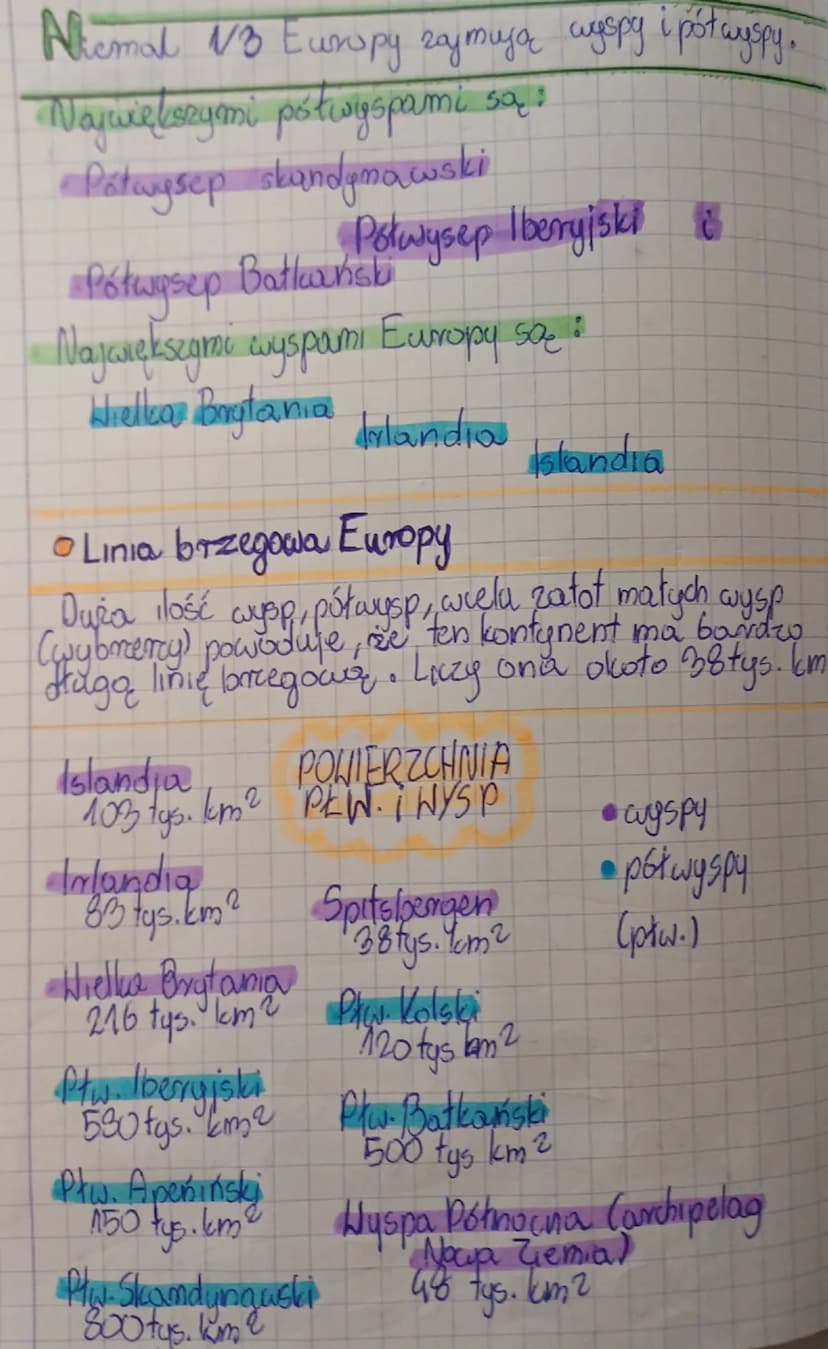 Niemal 1/3 Europy zajmują wyspy i półwyspy.
Największymi półwyspami są:
Półwysep skandynawski
Półwysep Iberyjski i
Półwysep Bałkański
Największymi wyspami Europy są:
Wielka Brytania
Irlandia
Islandia
Linia brzegowa Europy
Duża ilość wysp, półwysp, wiela zatot małych wysp
(wybrzerzy) powoduje, że ten kontynent ma bardzo
długą linię brzegową. Liczy ona około 38 tys. km
POWIERZCHNIA
PŁW. i WYSP
wyspy
półwyspy
(płw.)
Islandia
103 tys. km²
Irlandia
83 tys. km²
Wielka Brytania
216 tys. km²
Płw. Iberyjski
580 tys. km²
Płw. Apeniński
150 tys. km²
Płw. Skandynawski
800 tys. km²
Spitsbergen
38 tys. km²
Płw. Kolski
120 tys km²
Płw. Bałkański
500 tys km²
Wyspa Północna (archipelag
Nowa Ziemia)
48 tys. km²